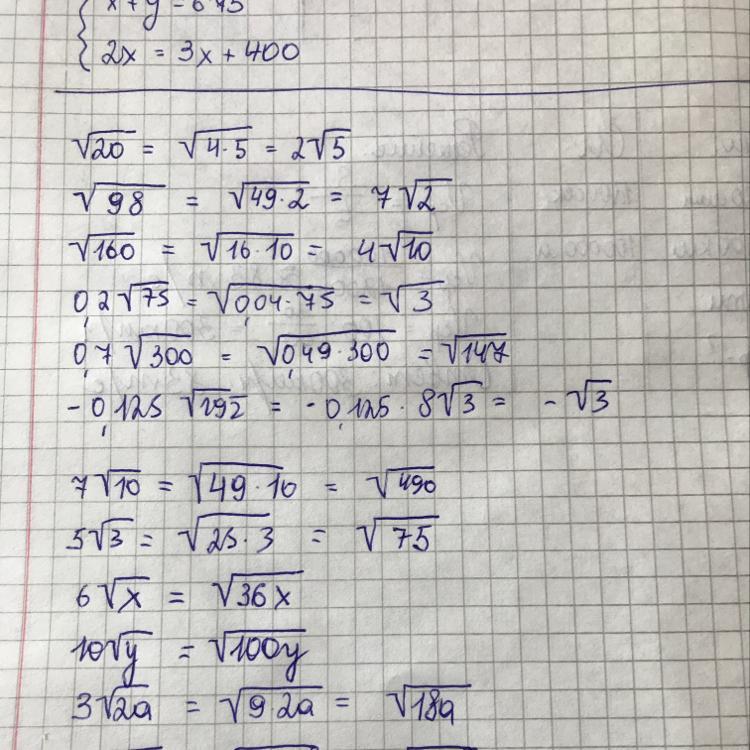 x + y = 675
2x = 3x + 400
√20 = √4·5 = 2√5
√98 = √49·2 = 7√2
√160 = √16·10 = 4√10
0,2√75 = √0,04·75 = √3
0,7√300 = √0,49·300 = √147
-0,125√192 = -0,125·8√3 = -√3
7√10 = √49·10 = √490
5√3 = √25·3 = √75
6√x = √36x
10√y = √100y
3√2a = √9·2a = √18a